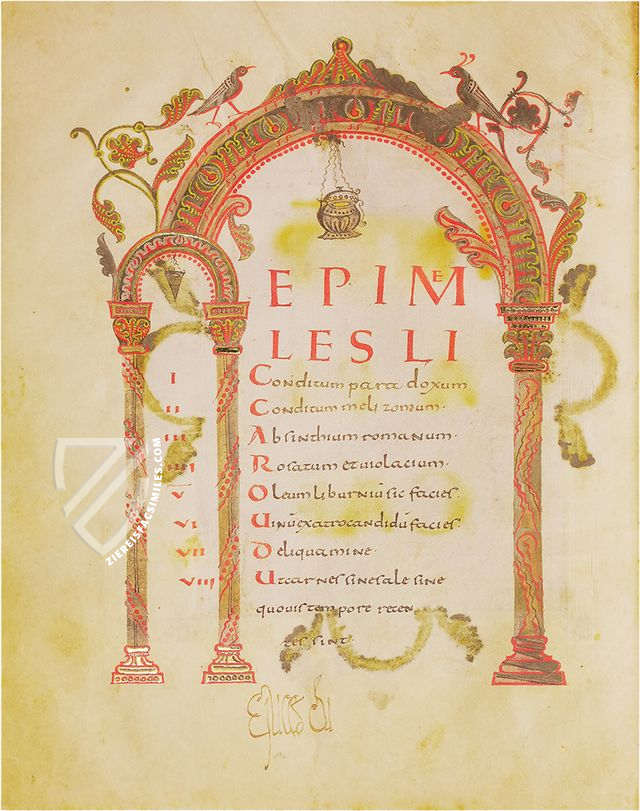 EPIMEⲈ
LES LI
I Conditum paradoxum
II Conditum melizomum·
III Absinthium romanum·
IIII Rosatum et uiolacium·
V Oleum liburniu sic facies·
VI Uinū ex atro candidū facies·
VII Deliquamine·
VIII Ut carnes sine sale sine
quouis tempore recen
tes sint
ZIEREIS FACSIMILES.COM